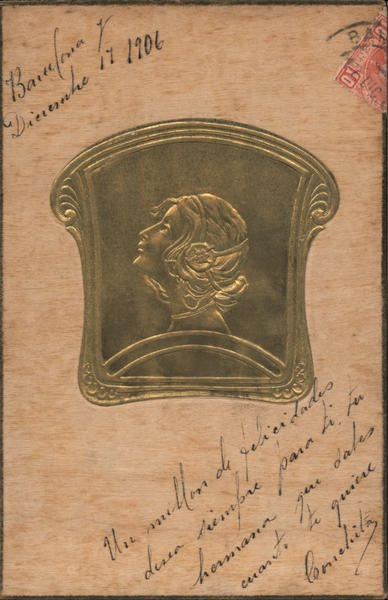 Barcelona y
Diciembre 17 1906
Un millon de felicidades
desea siempre para ti, tu
hermana que sabes
cuanto te quiere
Conchita